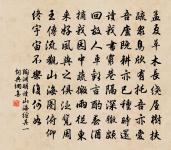 孟夏草木長繞屋樹扶
疏眾鳥欣有托吾亦愛
吾廬既耕亦已種時還
讀我書窮巷隔深轍頗
回故人車歡言酌春酒
摘我園中蔬微雨從東
來好風與之俱泛覽周
王傳流觀山海圖俯仰
終宇宙不樂復何如
陶淵明讀山海經其一